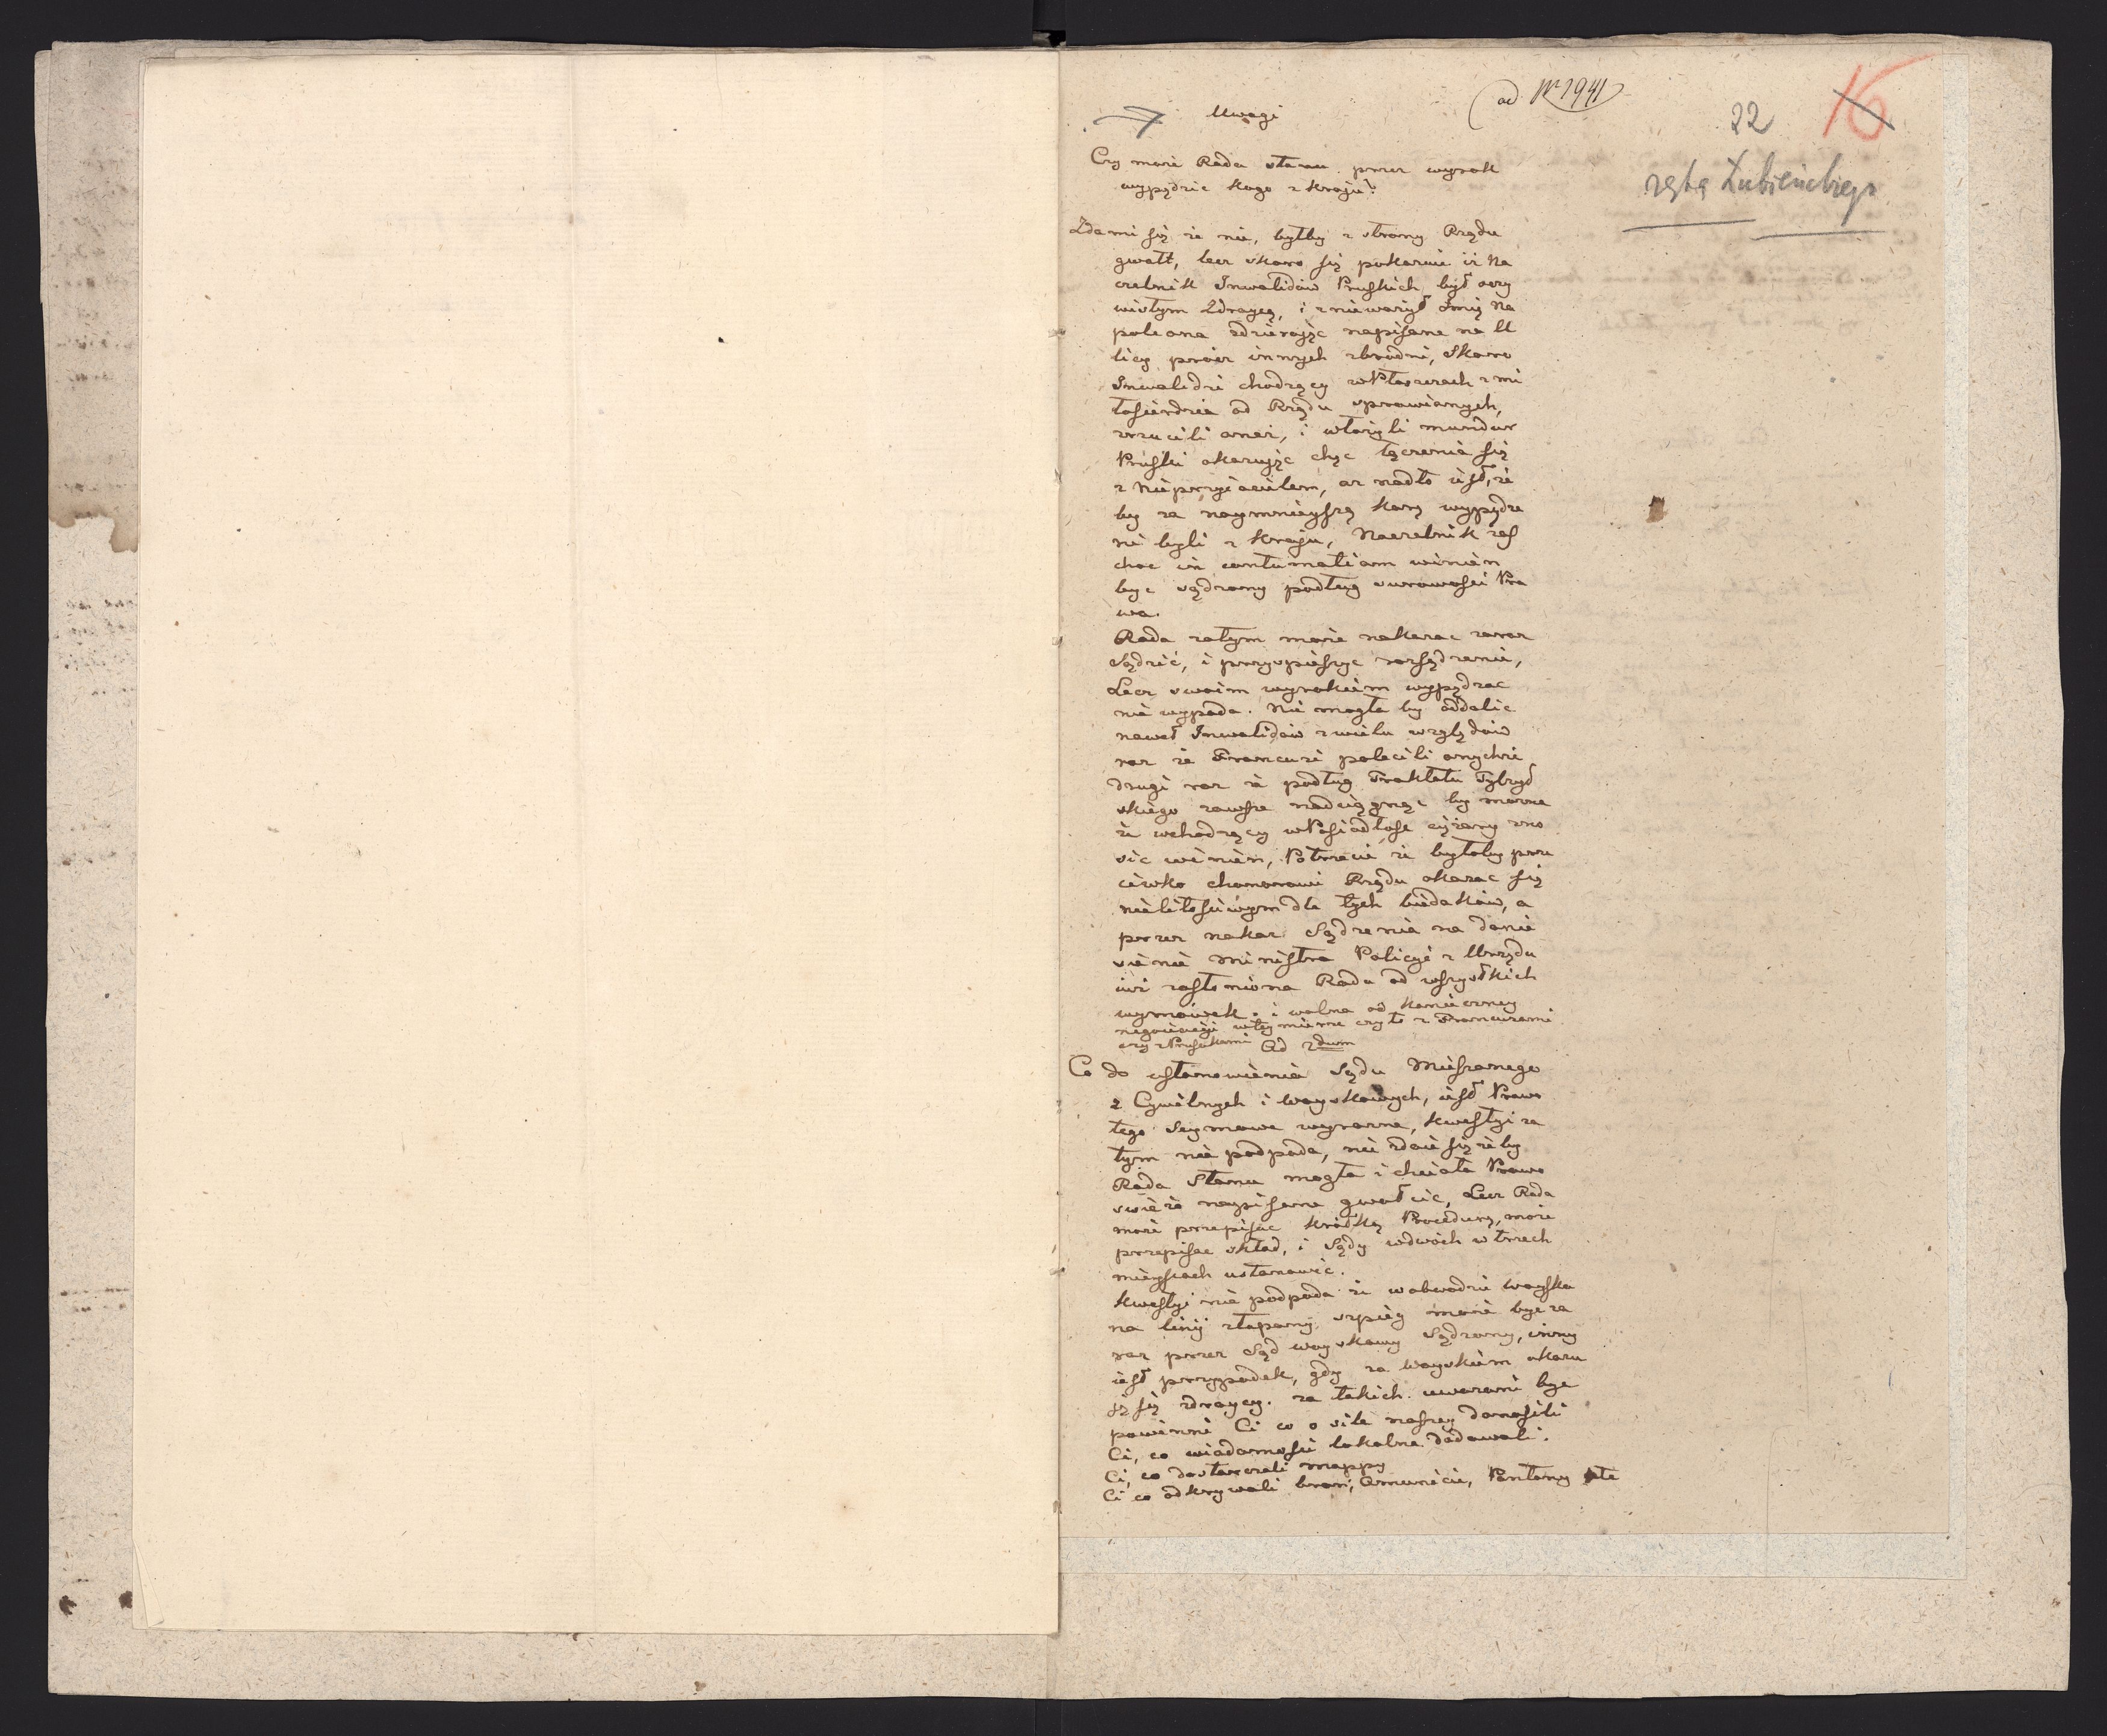 ad Nr 1941
22 16
ręką Łubieńskiego
7 Uwagi
Czy może Rada stanu przez wyrok
wypędzić kogo z kraju?
Zda mi się że nie, byłby z strony Rządu
gwałt, lecz skoro się pokazuie iż Na
czelnik Inwalidów Pruskich był oczy
wistym Zdraycą, i znieważył Imię Na
poleona zdzieraiąc napisane na U
licy prócz innych zbrodni, Skoro
Inwalidzi chodzący w Płaszczach z mi
łosierdzia od Rządu sprawianych,
zrzucili oneż, i włożyli mundur
Pruski okazuiąc chęć łączenia się
z Nieprzyiacielem, az nadto iest, że
by za naymnieyszą karę wypędze
ni byli z kraju, Naczelnik zaś
choc in contumatiam winien
byc sądzony podług surowości Pra
wa.
Rada zatym może nakazac zaraz
Sądzić, i przyspieszyc rozsądzenie,
Lecz swoim wyrokiem wypędzac
nie wypada. Nie mogła by oddalic
nawet Inwalidów z wielu względów
raz że Francuzi polecili onychże
drugi raz że podług Traktatu Tylzyt
skiego zawsze nadciągnąc by można
że wchodzący w Posiadłość ciężary zno
sic winien, Potrzecie że byłoby prze
ciwko chonorowi Rządu okazac się
nielitościwym dla tych biedaków, a
przez nakaz Sądzenia na donie
sienie Ministra Policyi z Urzędu
iuż zasłoniona Rada od wszystkich
wymówek. i wolna od konieczney
negociacyi w tey mierze czy to z Francuzami
czy z Prusakami Ad 2dum
Co do ustanowienia Sądu Mieszanego
z Cywilnych i Woyskowych, iest Prawo
tego Seymowe wyrazne, kwestyi za
tym nie podpada, nie zdaie się żeby
Rada Stanu mogła i chciała Prawo
świeżo napisane gwałcic, Lecz Rada
może przepisac krótką Procedurę, może
przepisac skład, i Sądy w dwóch w trzech
mieyscach ustanowic.
Kwestyi nie podpada że w obwodzie Woyska
na linij złapany szpieg może byc za
raz przez Sąd woyskowy Sądzony, inny
iest przypadek, gdy za woyskiem okazu
ją się zdraycy. za takich uwazani byc
powinni Ci co o sile naszey donosili
Ci, co wiadomości lokalne dodawali.
Ci, co dostarczali mappy
Ci co odkrywali broń, Amunicie, Pontony etc